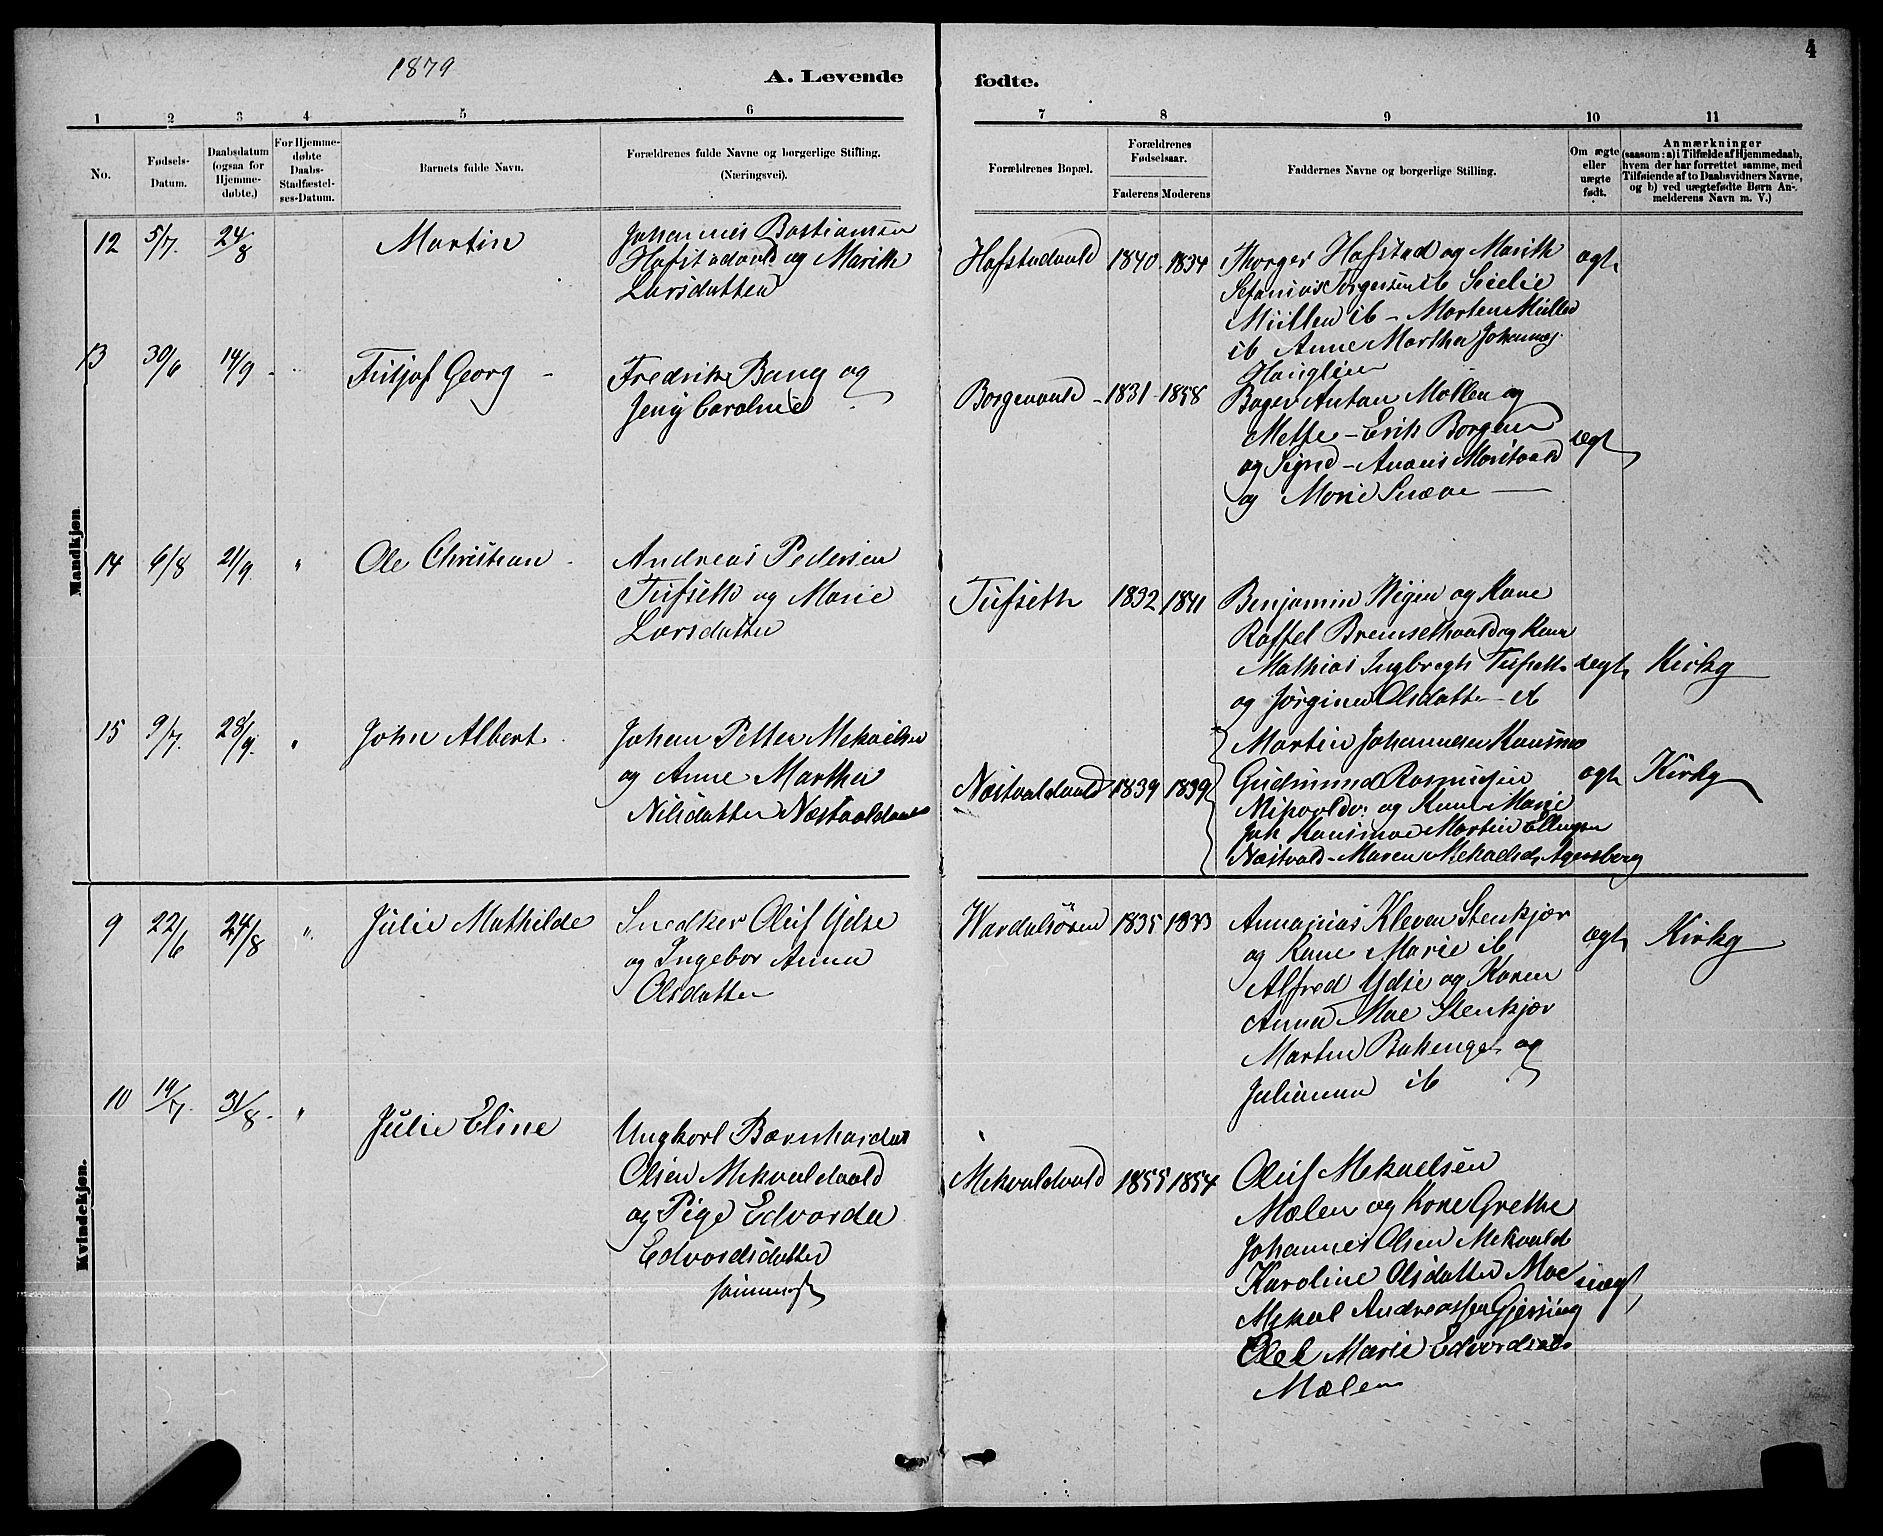 1879
A. Levende fødte.
4
1 2 3 4 5 6 7 8 9 10 11
No.
Fødsels-
Datum.
Daabsdatum
(ogsaa for
Hjemme-
døbte.)
For Hjemme-
døbte
Daabs-
Stadfæstel-
ses-Datum.
Barnets fulde Navn.
Forældrenes fulde Navne og borgerlige Stilling.
(Næringsvei).
Forældrenes Bopæl.
Forældrenes
Fødselsaar.
Faderens Moderens
Faddernes Navne og borgerlige Stilling.
Om ægte
eller
uægte
født.
Anmærkninger
(saasom: a) i Tilfælde af Hjemmedaab,
hvem der har forrettet samme, med
Tilføiende af to Daabsvidners Navne,
og b) ved uægtefødte Børn An-
melderens Navn m. V.)
Mandkjøn
12 5/7. 24/8 Martin
Johannes Bastiansen
Hofstadvald og Marith
Larsdatter
Hofstadvald 1840 - 1834
Thorger Hofstad og Marith
Torgersen ib
Müller ib - Morten Müller
ib Anne Martha Johannes
ægt
13 30/6 14/9 - Georg -
Fredrik Bang og
Jeny Caroline
Borgenvald - 1831 - 1858
Anton Mollen og
Mette - Erik Borgen
og Signe -
og Marie Snæve -
ægt
14 6/8 21/9 " Ole Christian -
Andreas Pedersen
Tufseth og Marie
Larsdatter
Tufseth 1832 1841
Benjamin og Kone
Mathias Ingbregts Tufseth
og Jørgine Olsdatter
ægt Kirkg
15 9/7. 28/9. " John Albert.
Johan Petter Mekaelsen
og Anne Martha
Nilsdatter Næstvaldvald
Næstvaldvald 1839 1839
Martin Johannesen Kausmo
Gudmund Rasmussen
og Kone Marie
Joh Kausmoe Martin Ellingsen
Næstvald - Maren Mekaelsd.
ægt Kirkg
Kvindekjøn.
9 22/6 24/8 ". Julie Mathilde
Snedker Oluf Ydse
og Ingebor Anna
Olsdatter
Værdalsøren 1835 1833
Annanias Kleven Stenkjær
og Kone Marie ib
Alfred Ydse og Karen
Anna Moe Stenkjær
Martin Bakenget og
Julianna ib
ægt Kirkg
10 19/7. 31/8 - " Julie Eline
Ungkarl Bærnhardus
Olsen Mekvaldvald
og Pige Edvarda
Edvardsdatter
Mekvaldvald 1855 1854
Oluf Mekaelsen
Mælen og Kone Grethe
Johannes Olsen Mekvald
Karoline Olsdatter Moe
Mekal Andreassen Gjersing
Marie Edvardsdat
Mælen
uægt